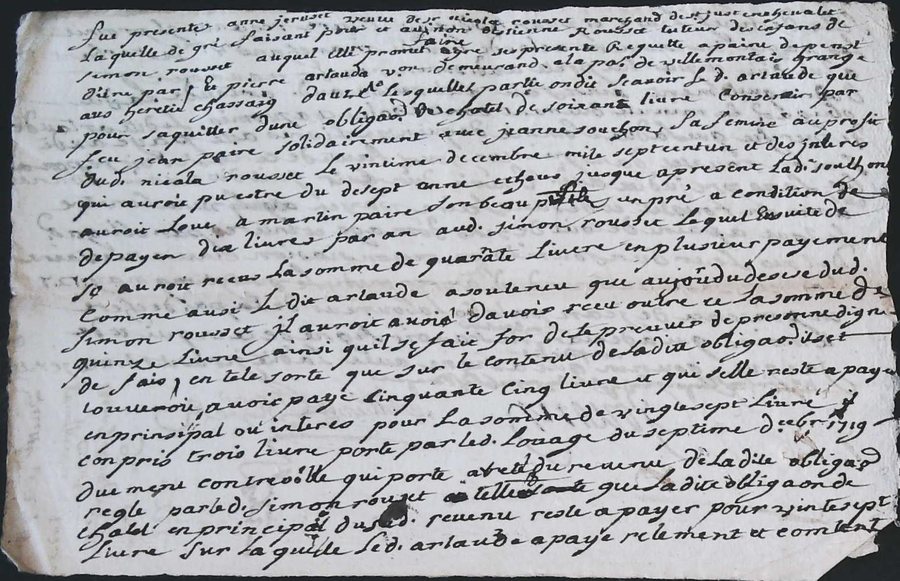 fue presente anne jeruset veuve de sr nicola rousset marchand de st just en chevalet
Laquelle de gré faisant pour et au nom de stienne Rousset tuteur des enfans de
simon rousset auquel elle promet faire agre ses presente Requette a paine de
ditre par Et pierre arlauda von demeurand a la pas de villemontais grange
aus heretie chassaig dauze Lesquelles partie ondit scavoir Le d. arlaude que
pour saquitter dune obligaon de chatel de soixante livre Consenir par
feu jean paire solidairement avec jeanne souchon, sa femme au profit
dud. nicola rousset Le vintime decembre mile sept cent un et des interes
qui auroit pu estre du desept anne echeus jusque apresent Ladi. souchon
auroit Loue a martin paire son beau un pré a condition de
de payer dix livres par an aud. simon rousset Lequel Ensuite de
so auroit receus La somme de quarate Livere en plusieur payement
Comme ausi Le dit arlaude a soutenu que aujourdu desese dud.
simon rousset jl auroit avoié davois receu outre ce La somme de
quinze Livre ainsi quil se fait for de le preuver de presonne dign
de fais, en tele sorte que sur le contenu de ladite obligaon. il set
trouveroit avoit payé Cinquante Cinq livre et qui selle reste a paye
en prinsipal ou interes pour La somme de vingtesept Livre y
conpris trois livre porte par led. Louage du septime decebr 1719
duement controille qui porte areté du revenu de Ladite obligaon
regle par led. simon rouset telle sorte que Ladite obligaon de
chatel en principal dusd. revenu reste a payer pour vintesept
Livre sur Laquelle Le d. arlaude a paye relement et contant